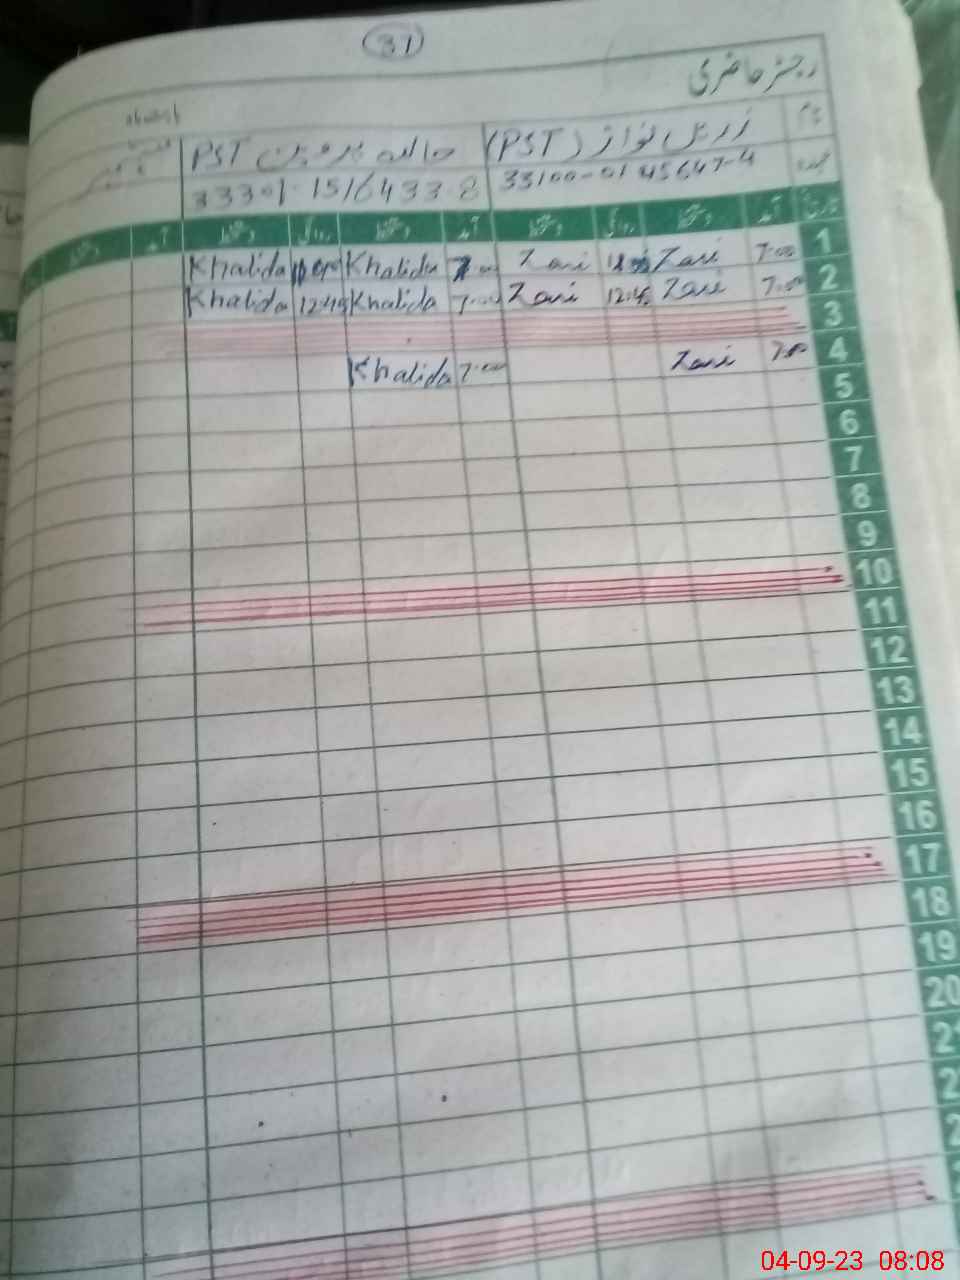 37
رجسٹر حاضری
نام زرعل نواز (PST) خالدہ پروین PST
عہدہ 33100-0145647-4 33301-1516433-8
تاریخ آمد دستخط روانگی دستخط آمد دستخط روانگی دستخط آمد دستخط
1 7:00 Zari Zari Khalida Khalida
2 7:00 Zari 12:45 Zari 7:00 Khalida 12:45 Khalida
3
4 7:00 Zari 7:00 Khalida
5
6
7
8
9
10
11
12
13
14
15
16
17
18
19
20
04-09-23 08:08